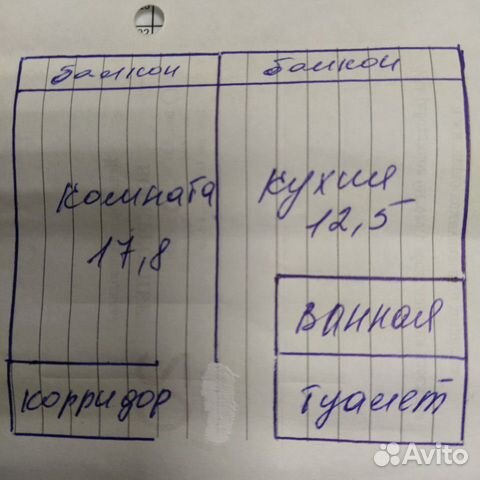 балкон балкон
комната кухня
12,5
17,8
ванная
корридор туалет
Avito